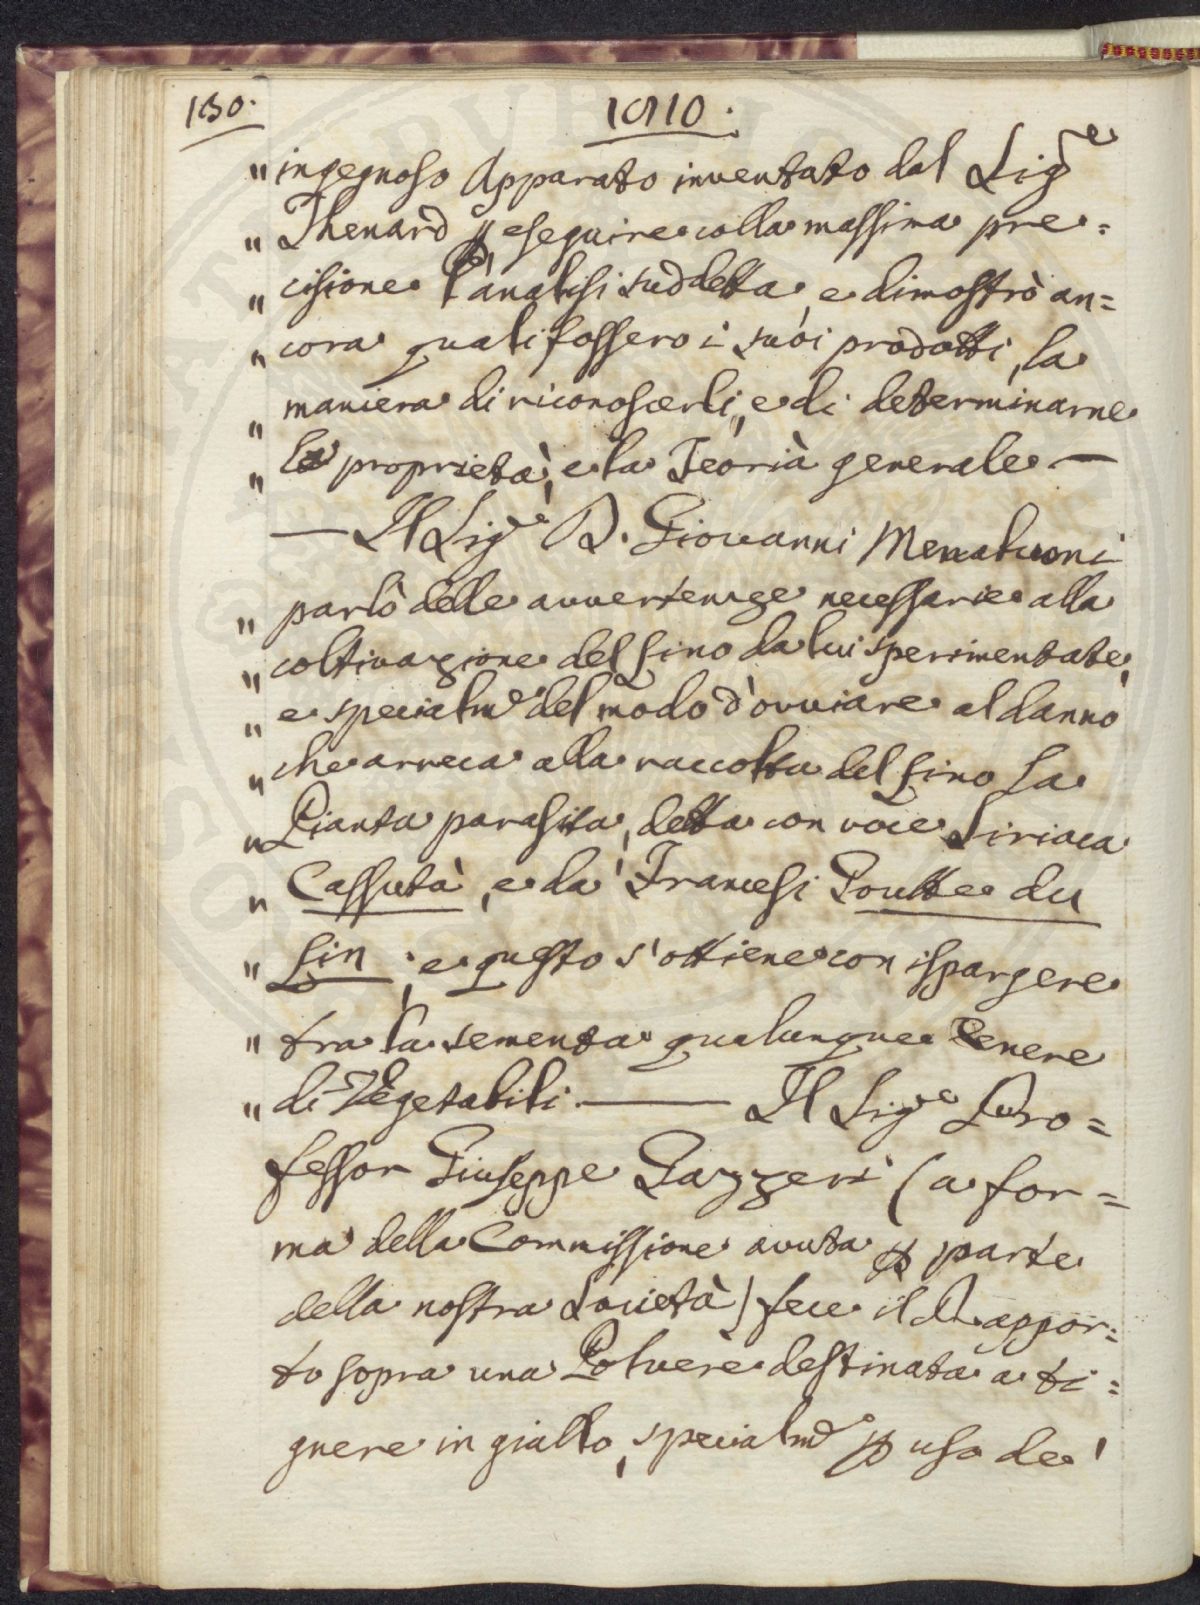 130. 1810.
" ingegnoso Apparato inventato dal Sig.e
" Thenard p eseguire colla massima pre=
" cisione l'analisi suddetta, e dimostrò an=
" cora quali fossero i suoi prodotti, la
" maniera di riconoscerli, e di determinarne
" le proprietà, e la Teoria generale —
— Il Sig.e D. Giovanni
" parlò delle avvertenze necessarie alla
" coltivazione del Lino da lui sperimentate,
" e specialm.e del modo d'ovviare al danno
" che arreca alla raccolta del Lino la
" Pianta parasita, detta con voce Siriaca
" Cassuta, e da' Francesi Goutte du
" Lin; e questo s'ottiene con ispargere
" tra la sementa qualunque Cenere
" di Vegetabili. — Il Sig.e Pro=
fessor Giuseppe Gazzeri (a for=
ma della Commissione avuta p parte
della nostra Società) fece il Rappor=
to sopra una Polvere destinata a ti=
gnere in giallo, specialm.e p uso de'